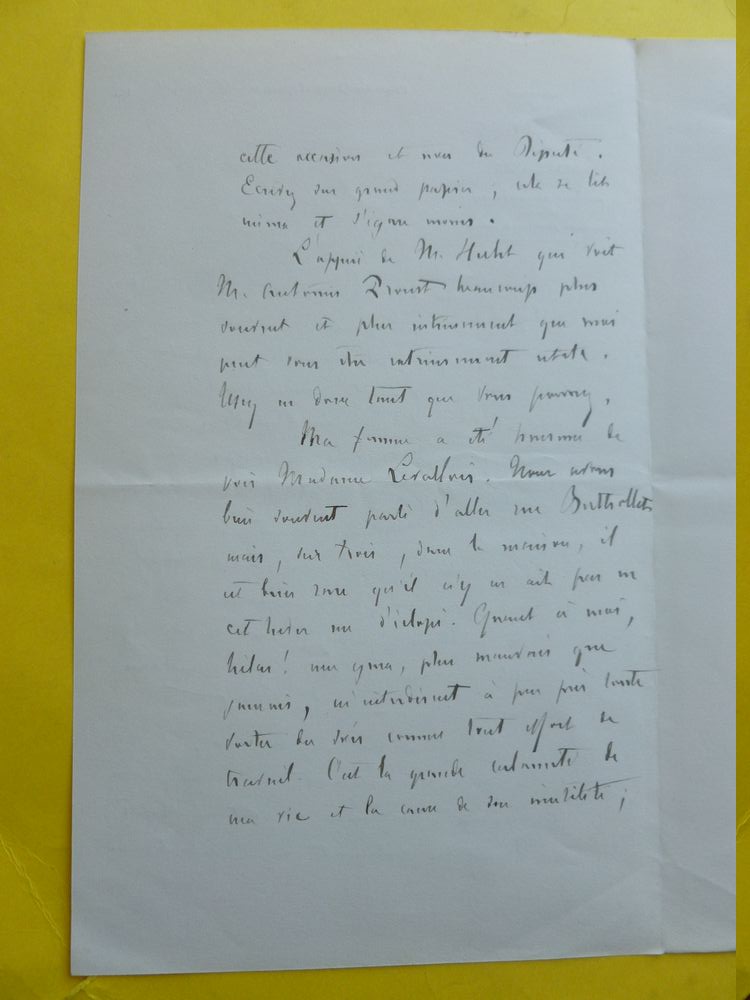 cette occasion et non du Député.
Ecrivez sur grand papier ; cela se lit
mieux et s'égare moins.
L'appui de M. Hecht qui voit
M. Antonin Proust beaucoup plus
souvent et plus intimement que moi
peut vous être extrêmement utile.
Usez en donc tant que vous pourrez.
Ma femme a été heureuse de
voir Madame Levallois. Nous avons
bien souvent parlé d'aller rue Berthollet
mais, sur trois, dans la maison, il
est bien rare qu'il n'y en ait pas en
cet hiver un d'éclopé. Quant à moi,
hélas ! mes yeux, plus mauvais que
jamais, m'interdisent à peu près toute
sortie du soir comme tout effort de
travail. C'est la grande calamité de
ma vie et la cause de son inutilité ;